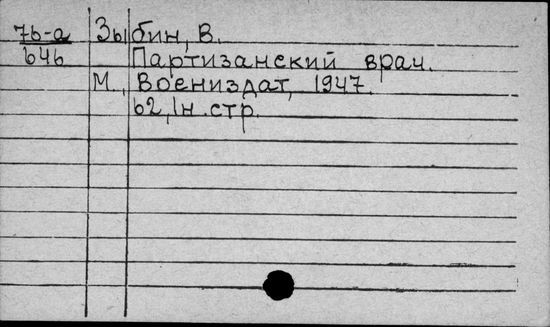 7б-а Зыбин, В.
646 Партизанский врач.
М., Воениздат, 1947.
62, 1н.стр.